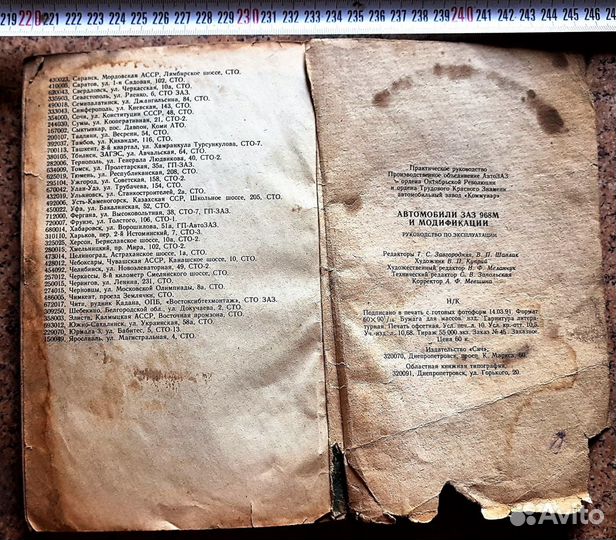 219 220 221 222 223 224 225 226 227 228 229 230 231 232 233 234 235 236 237 238 239 240 241 242 243 244 245 246
430023, Саранск, Мордовская АССР, Лямбирское шоссе, СТО.
410005, Саратов, ул. 1-я Садовая, 102, СТО.
620043, Свердловск, ул. Черкасская, 10а, СТО.
335903, Севастополь, ул. Раенко, 6, СТО ЗАЗ.
490018, Семипалатинск, ул. Джангильдина, 84, СТО.
333043, Симферополь, ул. Киевская, 143, СТО.
354000, Сочи, ул. Конституции СССР, 48, СТО.
244030, Сумы, ул. Кооперативная, 21, СТО-2.
167002, Сыктывкар, пос. Давпон, Коми АТО.
200107, Таллинн, ул. Весреня, 54, СТО.
392037, Тамбов, ул. Киквидзе, 116, СТО.
700113, Ташкент, 8-й квартал, ул. Хамранкула Турсункулова, СТО-7.
380105, Тбилиси, ЗАГЭС, ул. Авчальская, 64, СТО.
282006, Тернополь, ул. Генерала Людвикова, 40, СТО-2.
634009, Томск, ул. Пролетарская, 35а, ГП-ЗАЗ.
625019, Тюмень, ул. Республиканская, 208, СТО.
295104, Ужгород, ул. Советская, 158, СТО-2.
670042, Улан-Удэ, ул. Трубачева, 154, СТО.
432019, Ульяновск, ул. Станкостроителей, 2а, СТО.
492006, Усть-Каменогорск, Казахская ССР, Школьное шоссе, 205, СТО.
450022, Уфа, ул. Бакалинская, 52, СТО.
712000, Фергана, ул. Высоковольтная, 38, СТО-7, ГП-ЗАЗ.
720007, Фрунзе, ул. Толстого, 106, СТО-1.
680014, Хабаровск, ул. Ворошилова, 51а, ГП-АвтоЗАЗ.
310110, Харьков, пер. 2-й Истоминский, 7, СТО-3.
325025, Херсон, Бериславское шоссе, 10а, СТО-2.
280015, Хмельницкий, пр. Мира, 102, СТО-2.
473014, Целиноград, Астраханское шоссе, 1а, СТО.
428012, Чебоксары, Чувашская АССР, Канашское шоссе, 10, СТО.
454092, Челябинск, ул. Новоэлеваторная, 49, СТО-2.
257012, Черкассы, 8-й километр Смелянского шоссе, СТО.
250015, Чернигов, ул. Ленина, 231, СТО.
274015, Черновцы, ул. Московской Олимпиады, 8а, СТО.
486005, Чимкент, проезд Землячки, СТО.
672017, Чита, рудник Кадала, ОПБ, «Востоксибтехмонтажа», СТО ЗАЗ.
309250, Шебекино, Белгородской обл., ул. Докучаева, 2, СТО.
358003, Элиста, Калмыцкая АССР, Восточная промзона, СТО.
693012, Южно-Сахалинск, ул. Украинская, 58а, СТО.
229070, Юрмала 3, ул. Бабитес, 5, СТО-13.
150049, Ярославль, ул. Магистральная, 4, СТО.
Практическое руководство
Производственное объединение АвтоЗАЗ
ордена Октябрьской Революции
и ордена Трудового Красного Знамени
автомобильный завод «Коммунар»
АВТОМОБИЛИ ЗАЗ 968М
И МОДИФИКАЦИИ
РУКОВОДСТВО ПО ЭКСПЛУАТАЦИИ
Редакторы Г. С. Завгородняя, В. П. Шаплак
Художник В. П. Кривой
Художественный редактор Н. Ф. Мельничук
Технический редактор С. В. Запольская
Корректор А. Ф. Мевшина
Н/К
Подписано в печать с готовых фотоформ 14.03.91. Формат
60×90/16. Бумага для массов. изд. Гарнитура литера-
турная. Печать офсетная. Усл. печ. л. 10. Усл. кр.-отт. 10,5.
Уч.-изд. л. 10,68. Тираж 55 000 экз. Заказ № 45. Заказное.
Цена 60 к.
Издательство «Січ»,
320070, Днепропетровск, просп. К. Маркса, 60.
Областная книжная типография,
320091, Днепропетровск, ул. Горького, 20.
Avito